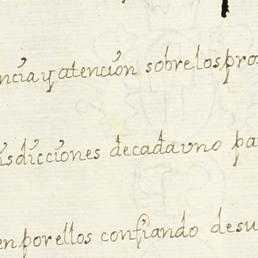 ncia y atención sobre los pro
isdicciones de cada uno pa
en por ellos confiando de su